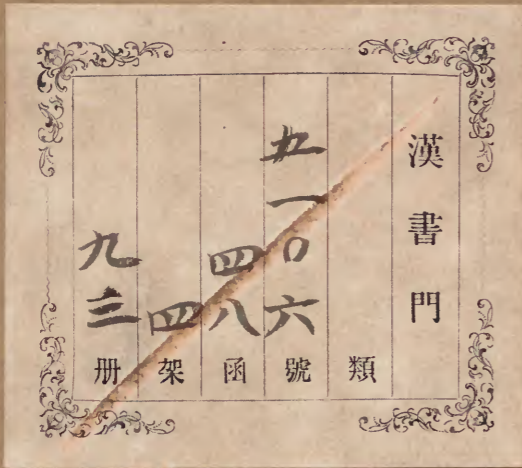 漢書門
類
九一〇六號
四八函
四架
九三册